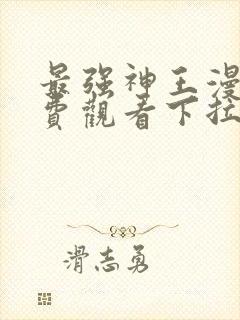 最强神王漫
費觀看下拉
滑志勇